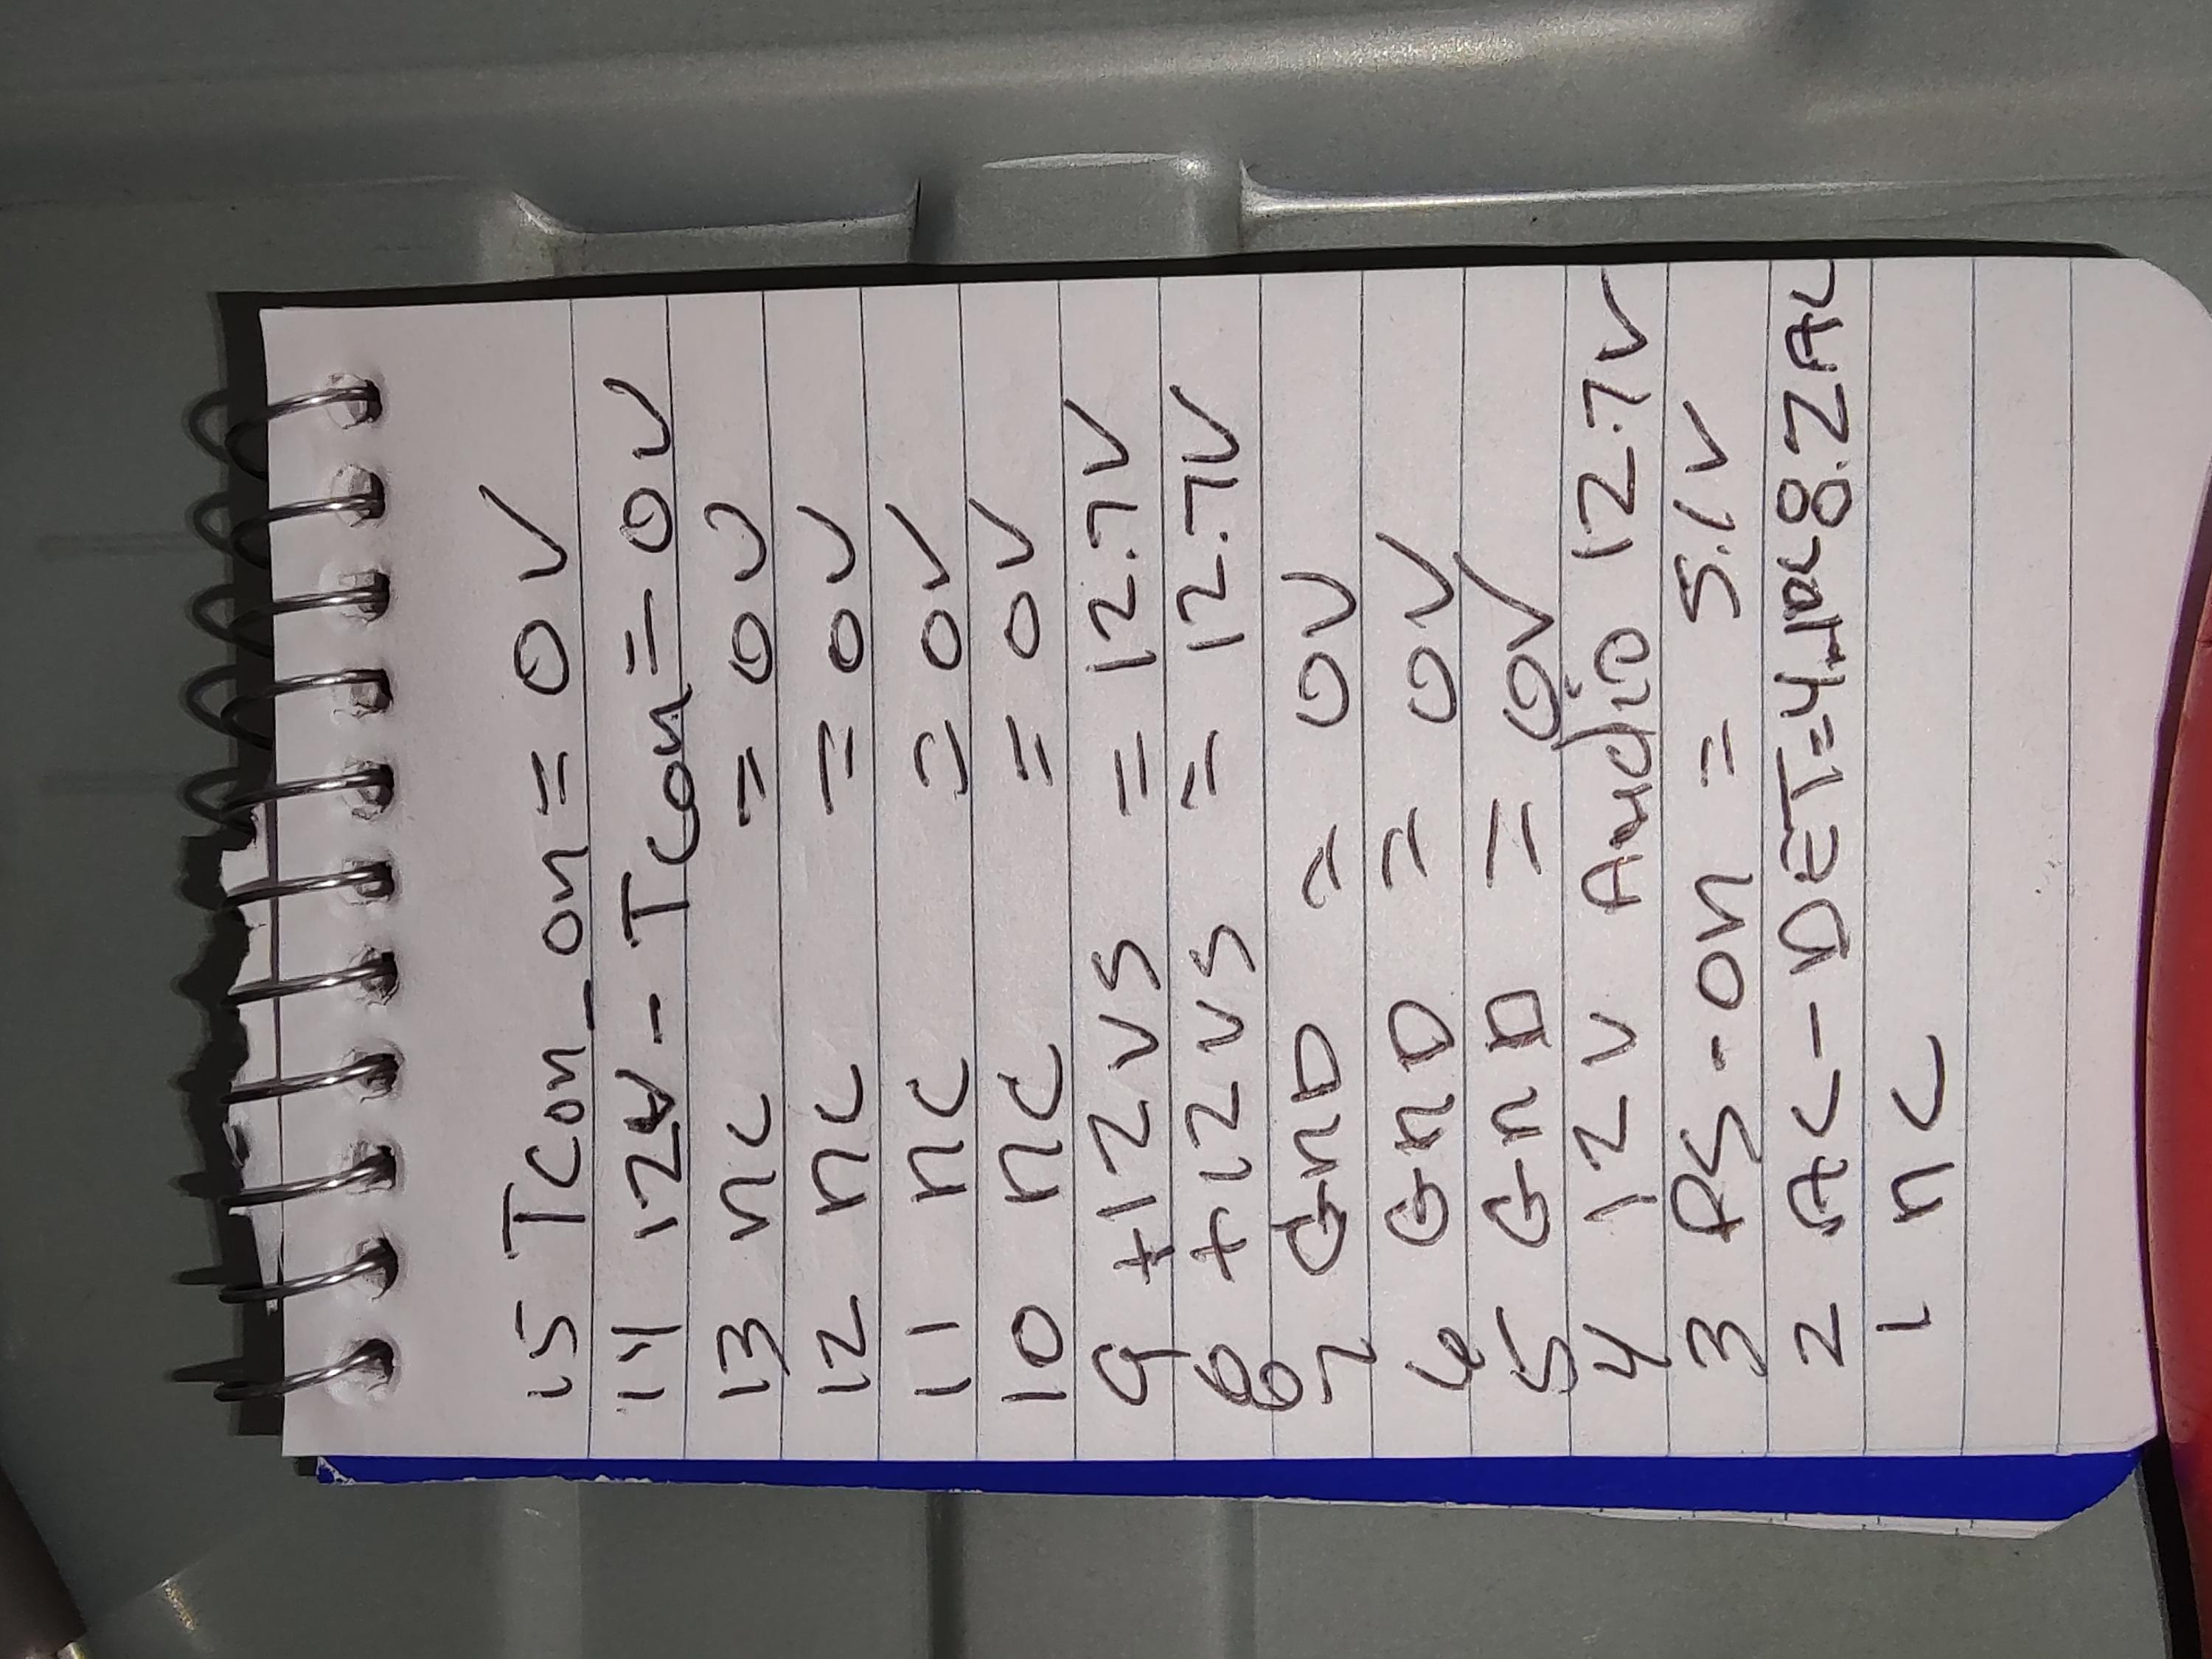 15 Tcon_on = 0V
14 12V - Tcon = 0V
13 nc = 0V
12 nc = 0V
11 nc = 0V
10 nc = 0V
9 +12VS = 12.7V
8 +12VS = 12.7V
7 GnD = 0V
6 GnD = 0V
5 GnD = 0V
4 12V Audio 12.7V
3 PS-on = 5.1V
2 AC-DET=4.1DC 8.2AC
1 nc